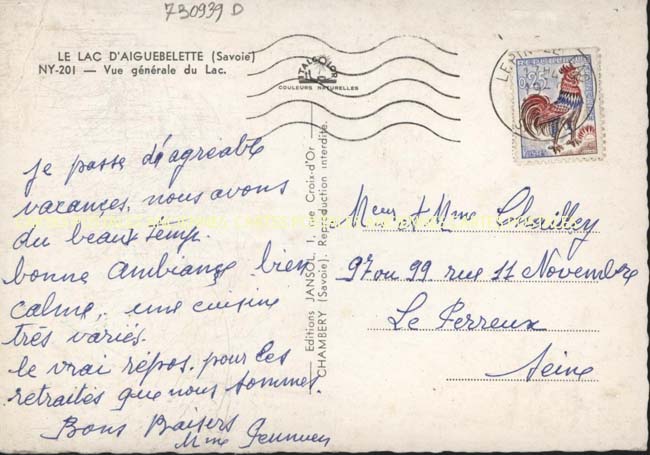 730939 D
LE LAC D'AIGUEBELETTE (Savoie)
NY-201 — Vue générale du Lac.
COULEURS NATURELLES
0,25
je passe d'agréable
vacances, nous avons
du beaux temp.
bonne ambiançe bien
calme, une cuisine
très variés.
le vrai répos. pour les
retraités que nous sommes.
Bons Baisers
Mme
Editions JANSOL, 1, rue Croix-d'Or
CHAMBERY (Savoie). Reproduction interdite.
Meur et Mme
97 ou 99 rue 11 Novembre
Le Perreux
Seine